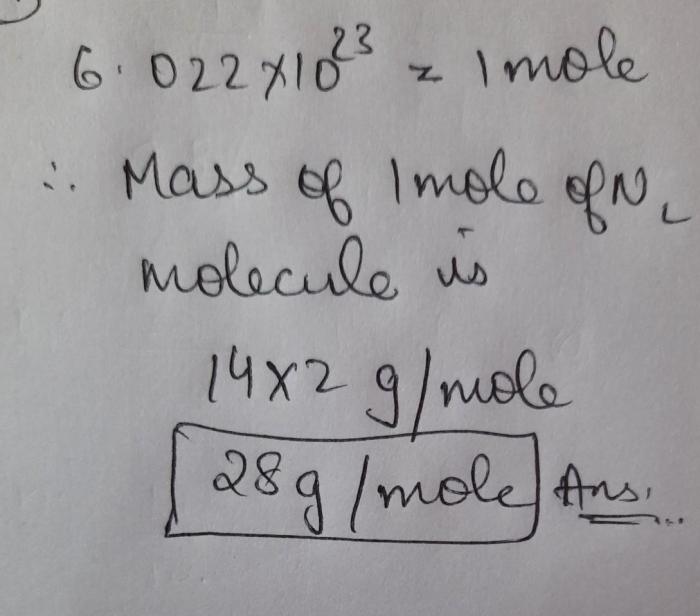 6.022×10²³ = 1 mole
∴ Mass of 1 mole of N₂
molecule is
14×2 g/mole
28g/mole Ans.